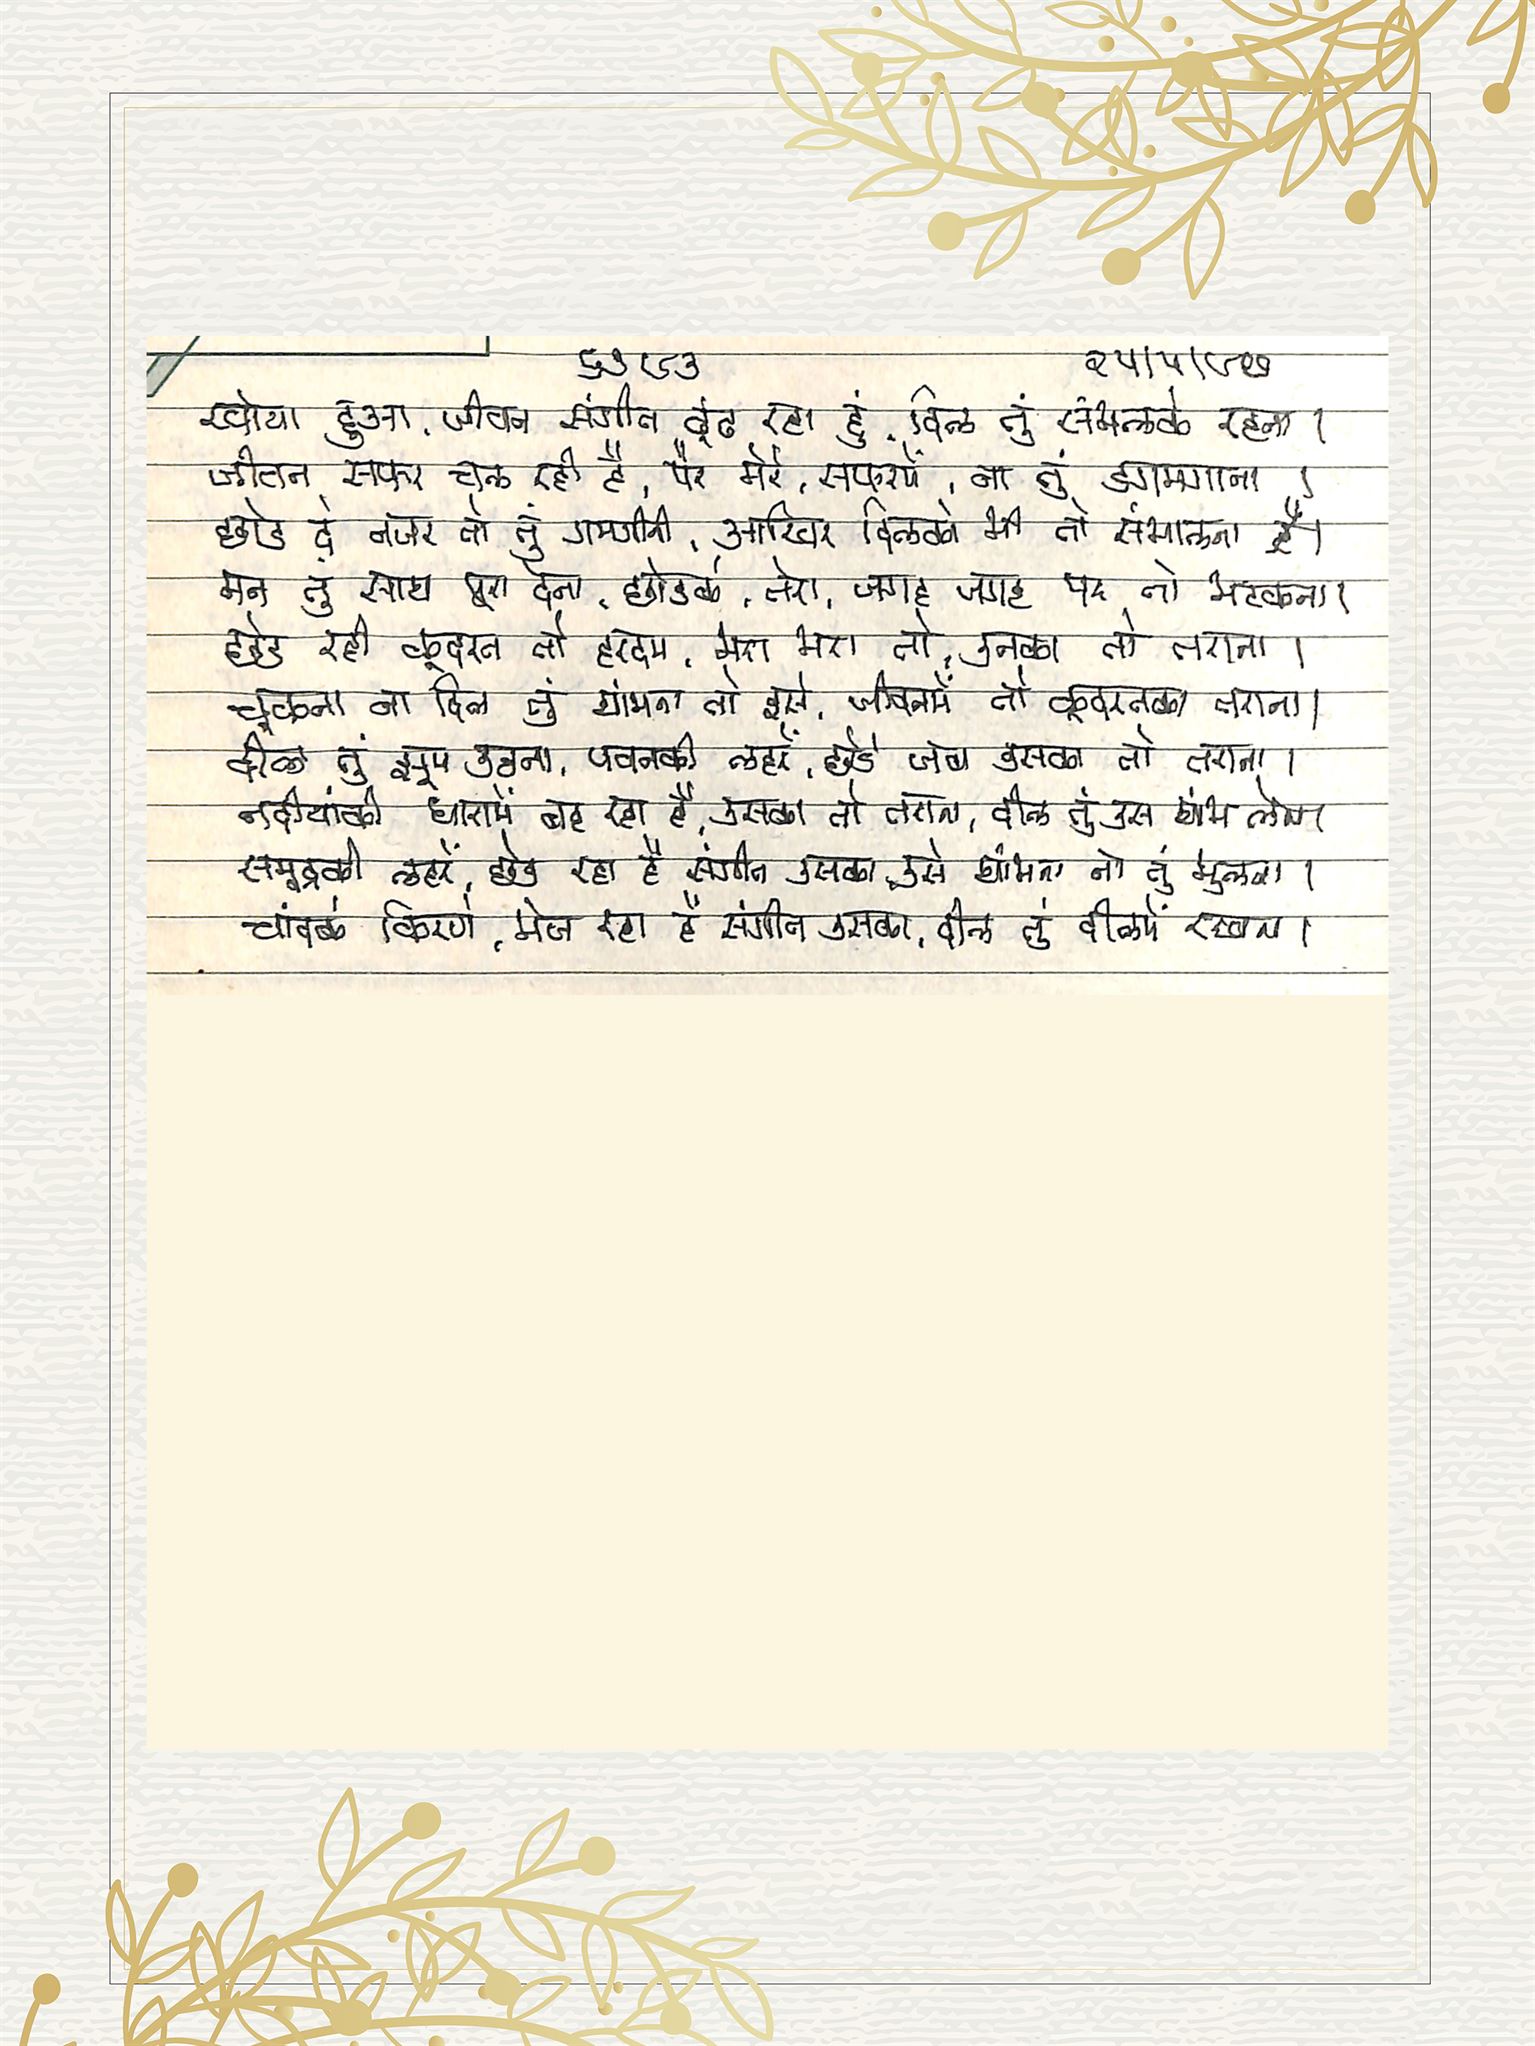 ६३८३ २५/५/८७
खोया हुआ, जीवन संगीत ढूंढ रहा हुं, दिल तुं संभलके रहना ।
जीवन सफर चल रही है, पैर मेरे, सफरमें, ना तुं डगमगाना ।
छोड दे नजर तो तुं गमगीनी, आखिर दिलको भी तो संभालना है।
मन तुं साथ पूरा देना, छोडके, तेरा, जगह जगह पर तो भटकना।
छेड रही कूदरत तो हरदम, भरा भरा तो, उनका तो तराना ।
चूकना ना दिल तुं थांभना तो इसे, जीवनमें तो कूदरतका तराना।
दील तुं झूम उठना, पवनकी लहरें, छेडे जब उसका तो तराना ।
नदीयांकी धारामें बह रहा है, उसका तो तराना, दील तुं उस थांभ लेना।
समुद्रकी लहरें, छेड रहा है संगीत उसका, उसे थांभना तो तुं भुलना ।
चांदके किरणे, भेज रहा है संगीत उसका, दील तुं दीलमें रखना ।